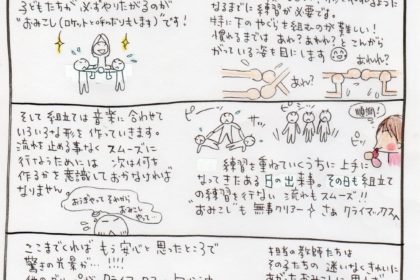 子どもたちが必ずやりたがるのが
"おみこし(ロケットと呼んだりもします)"です!
なるまでに練習が必要です。
特に下のやぐらを組むのが難しい!
慣れるまでは あれ?あれれ?と こんがら
がっている姿を目にします
あれ?
あれれ?
そして組立ては音楽に合わせて
いろいろな形を作っていきます。
流れを止める事なく スムーズに
行なうためには 次は何を
作るかを意識しておかなければ
なりません。
おうぎやってそれから
おみこしやって…
ピーッ
サッ
ピシッ
瞬間!
練習を重ねていくうちに上手に
なってきたある日の出来事。その日も組立て
の練習を行ない 流れもスムーズ!!
"おみこし"も無事クリアー さぁ クライマックス
ここまでくれば もう安心と思ったところで
驚きの光景が…!!!!
担当の教師たちは
その子たちの 迷いなくきれいに